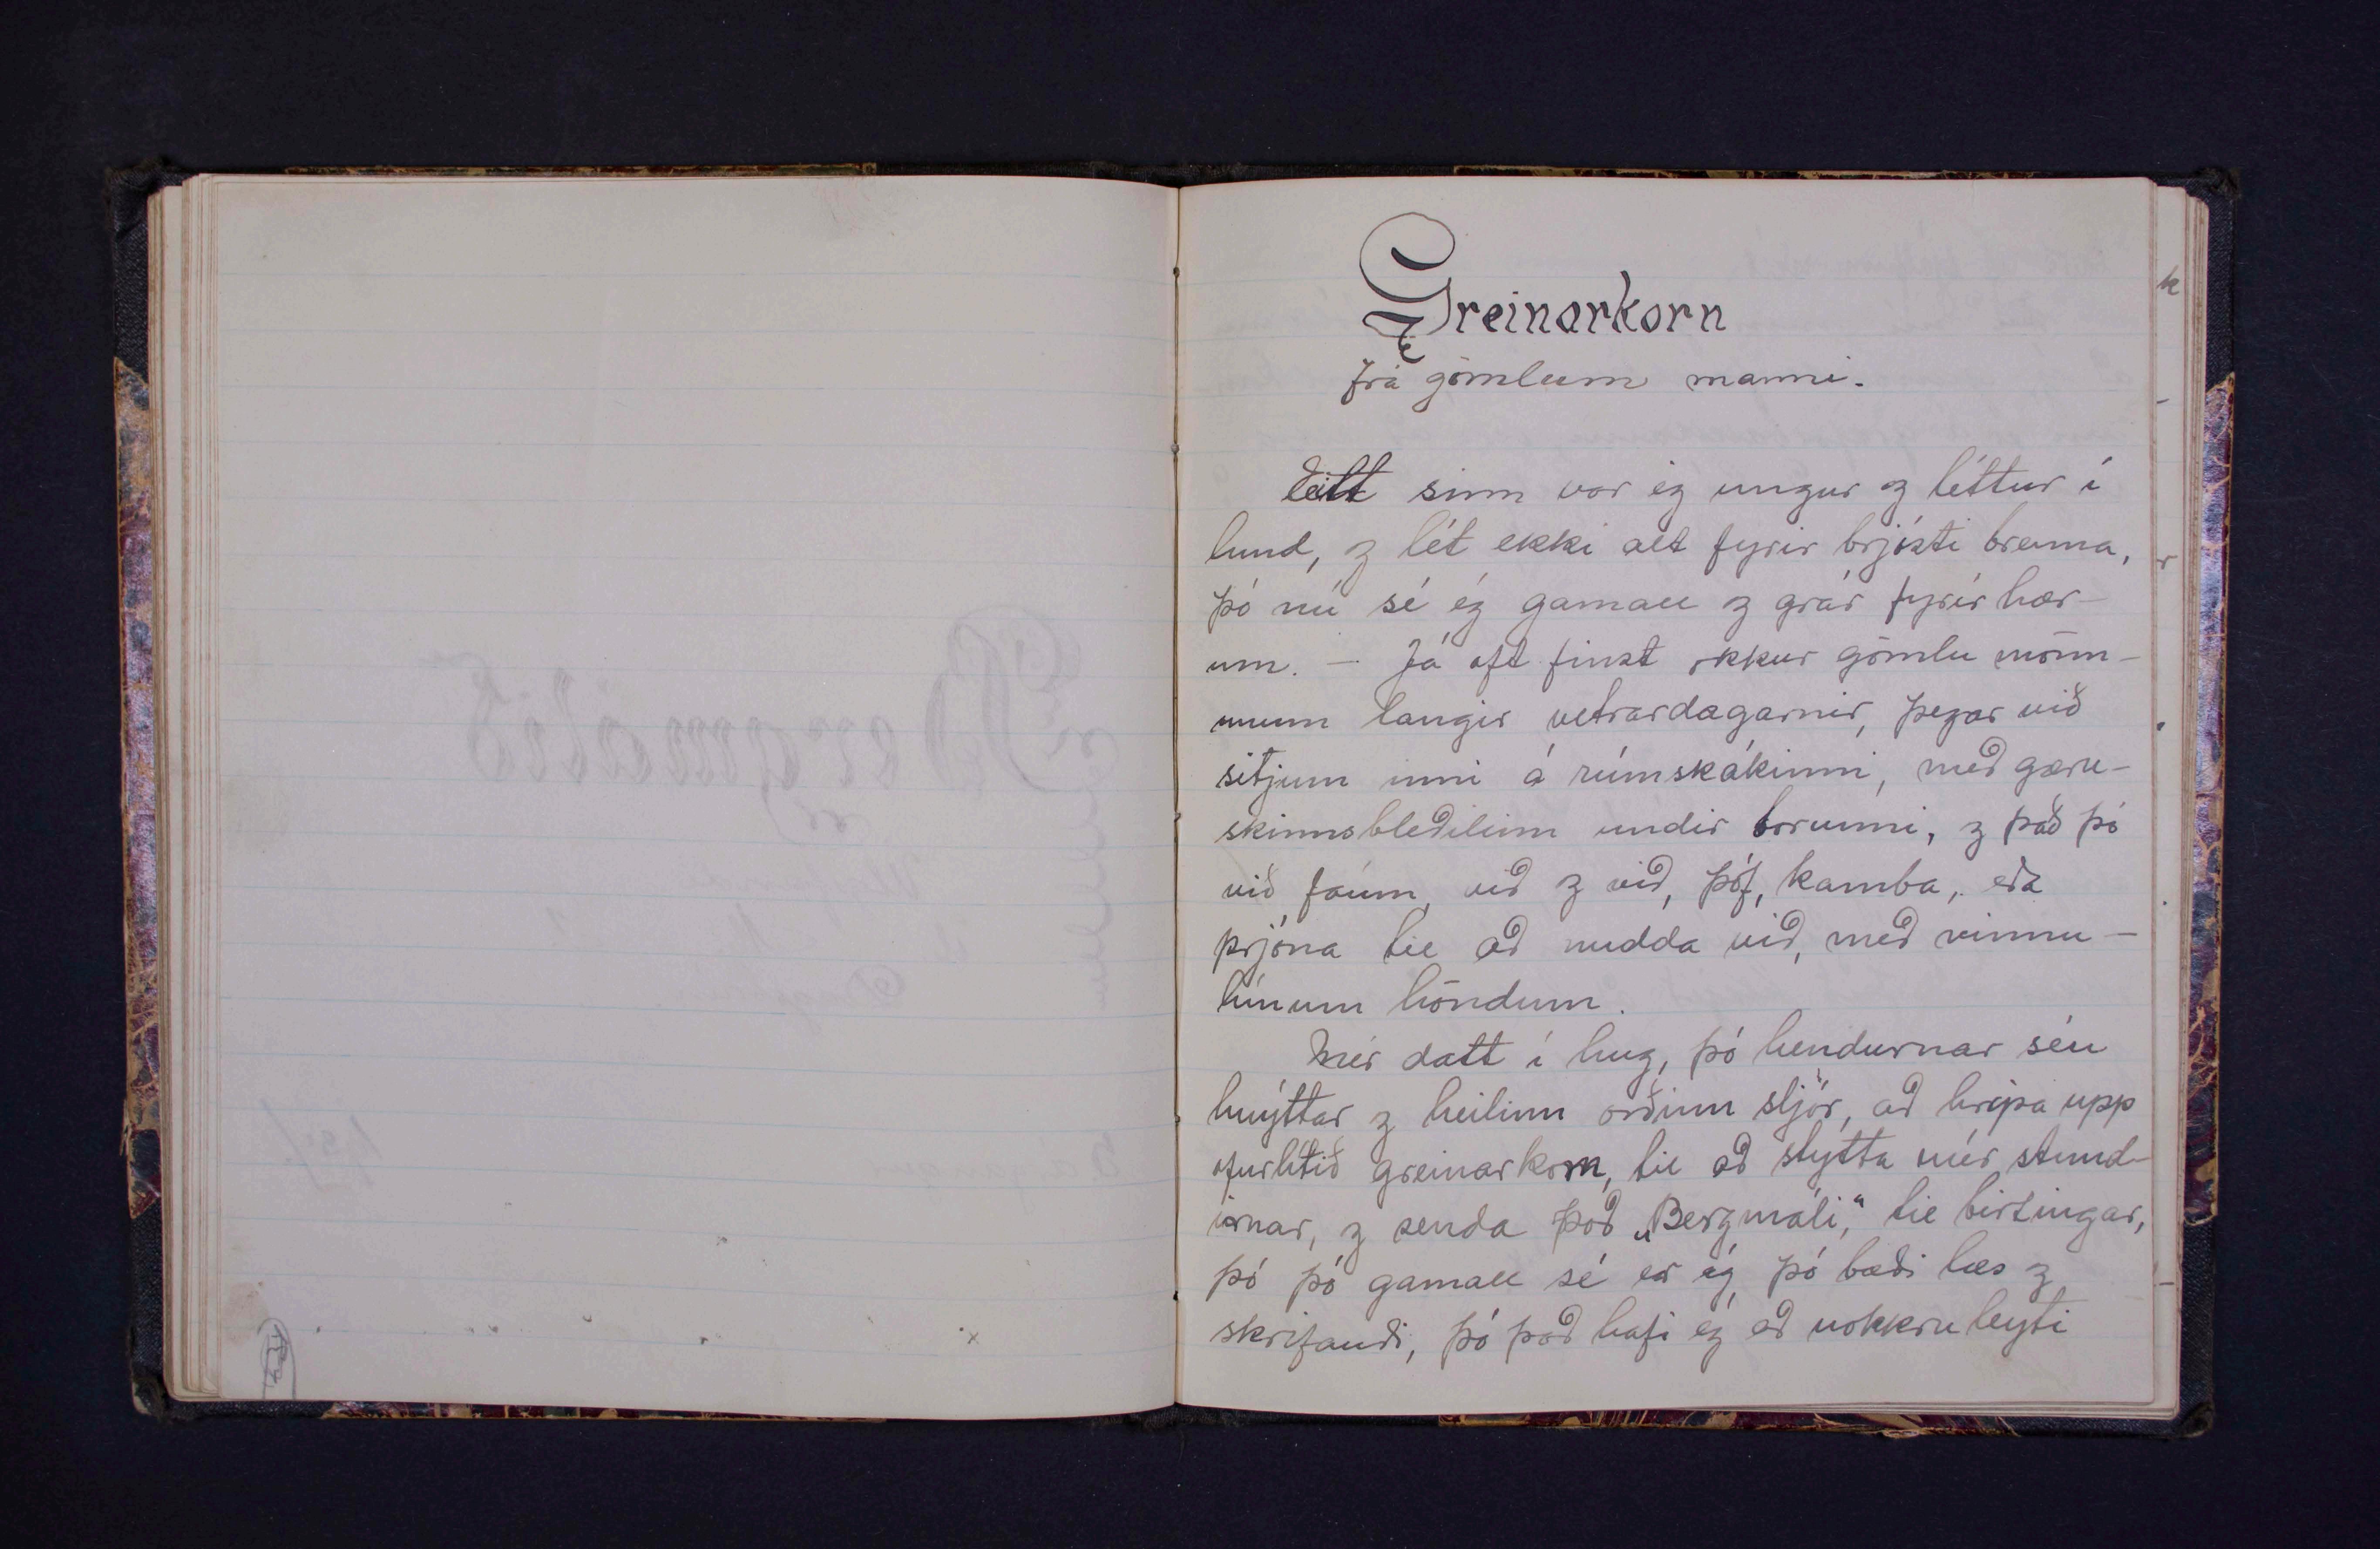 Greinarkorn
frá gömlum manni.
Eitt sinn var ég ungur og léttur í
lund, og lét ekki alt fyrir brjósti brenna,
þó nú sé ég gamall og grár fyrir hær-
um. - Já oft finst okkur gömlu mönn-
unum langir vetrardagarnir, þegar við
sitjum inni á rúmskákinni, með gæru-
skinnsbleðilinn undir borunni, og það þó
við fáum, við og við, þóf, kamba, eða
prjóna til að nudda við, með vinnu-
lúnum höndum.
Mér datt í hug, þó hendurnar séu
hnýttar og heilinn orðinn sljór, að hripa upp
ofurlítið greinarkorn, til að stytta mér stund-
irnar, og senda það „Bergmáli," til birtingar,
þó þó gamall sé er ég þó bæði læs og
skrifandi, þó það hafi ég að nokkru leyti